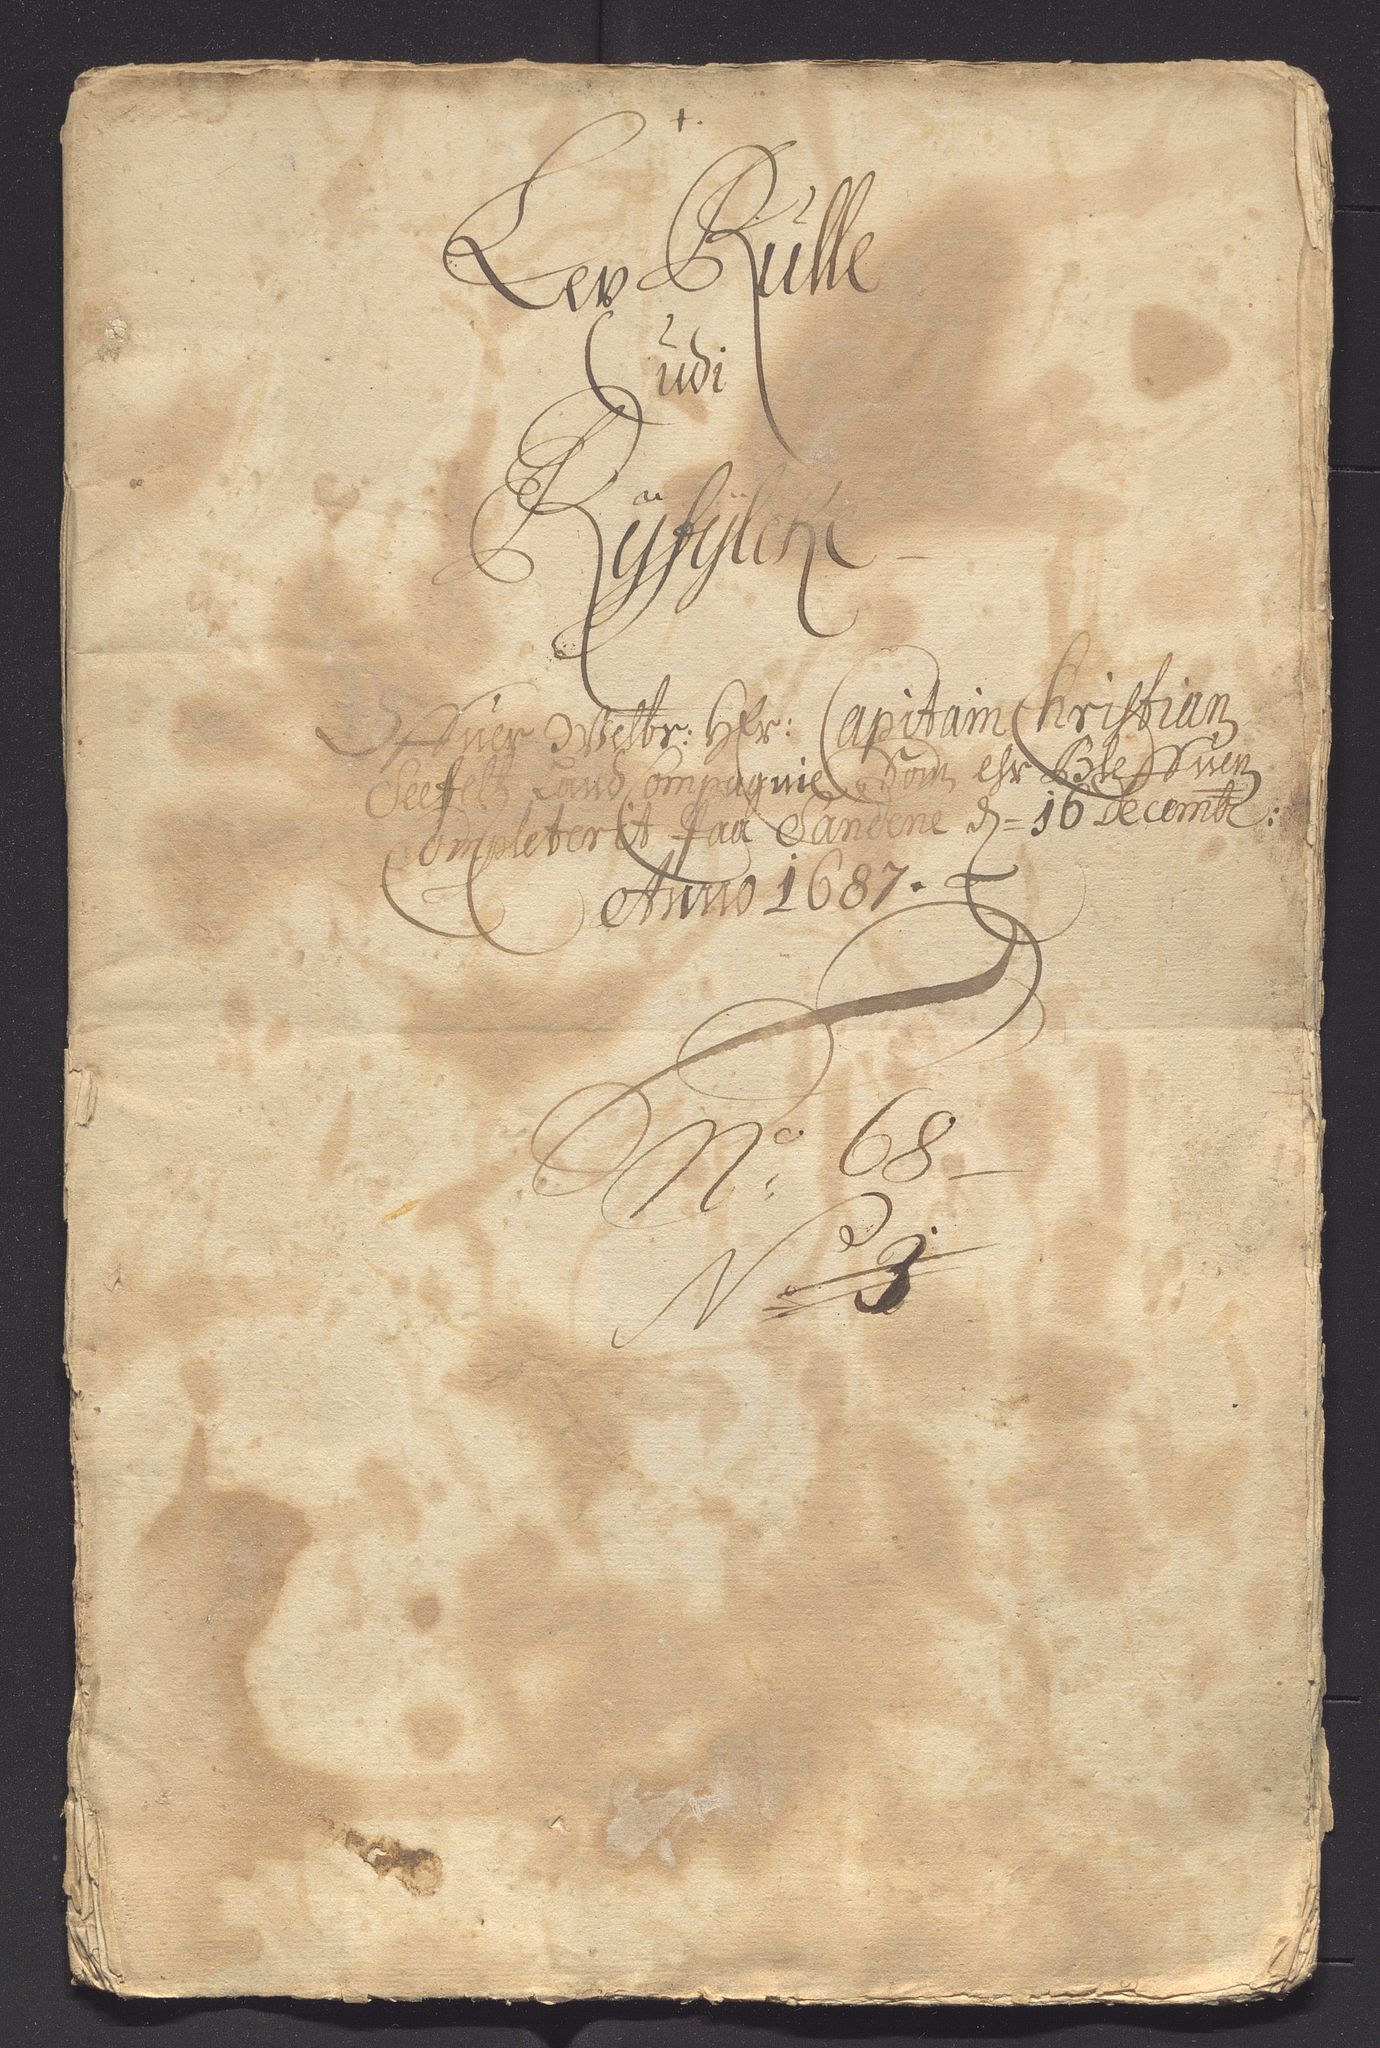 1.
Lev Rulle
udi
Ryfylcke
Offuer Welbr: Hr: Capitain Christian
Seefelt Land Compagnie Som ehr bleffuen
Completerit paa Sandene d = 16 decembr:
Anno 1687.
No: 68
No 3